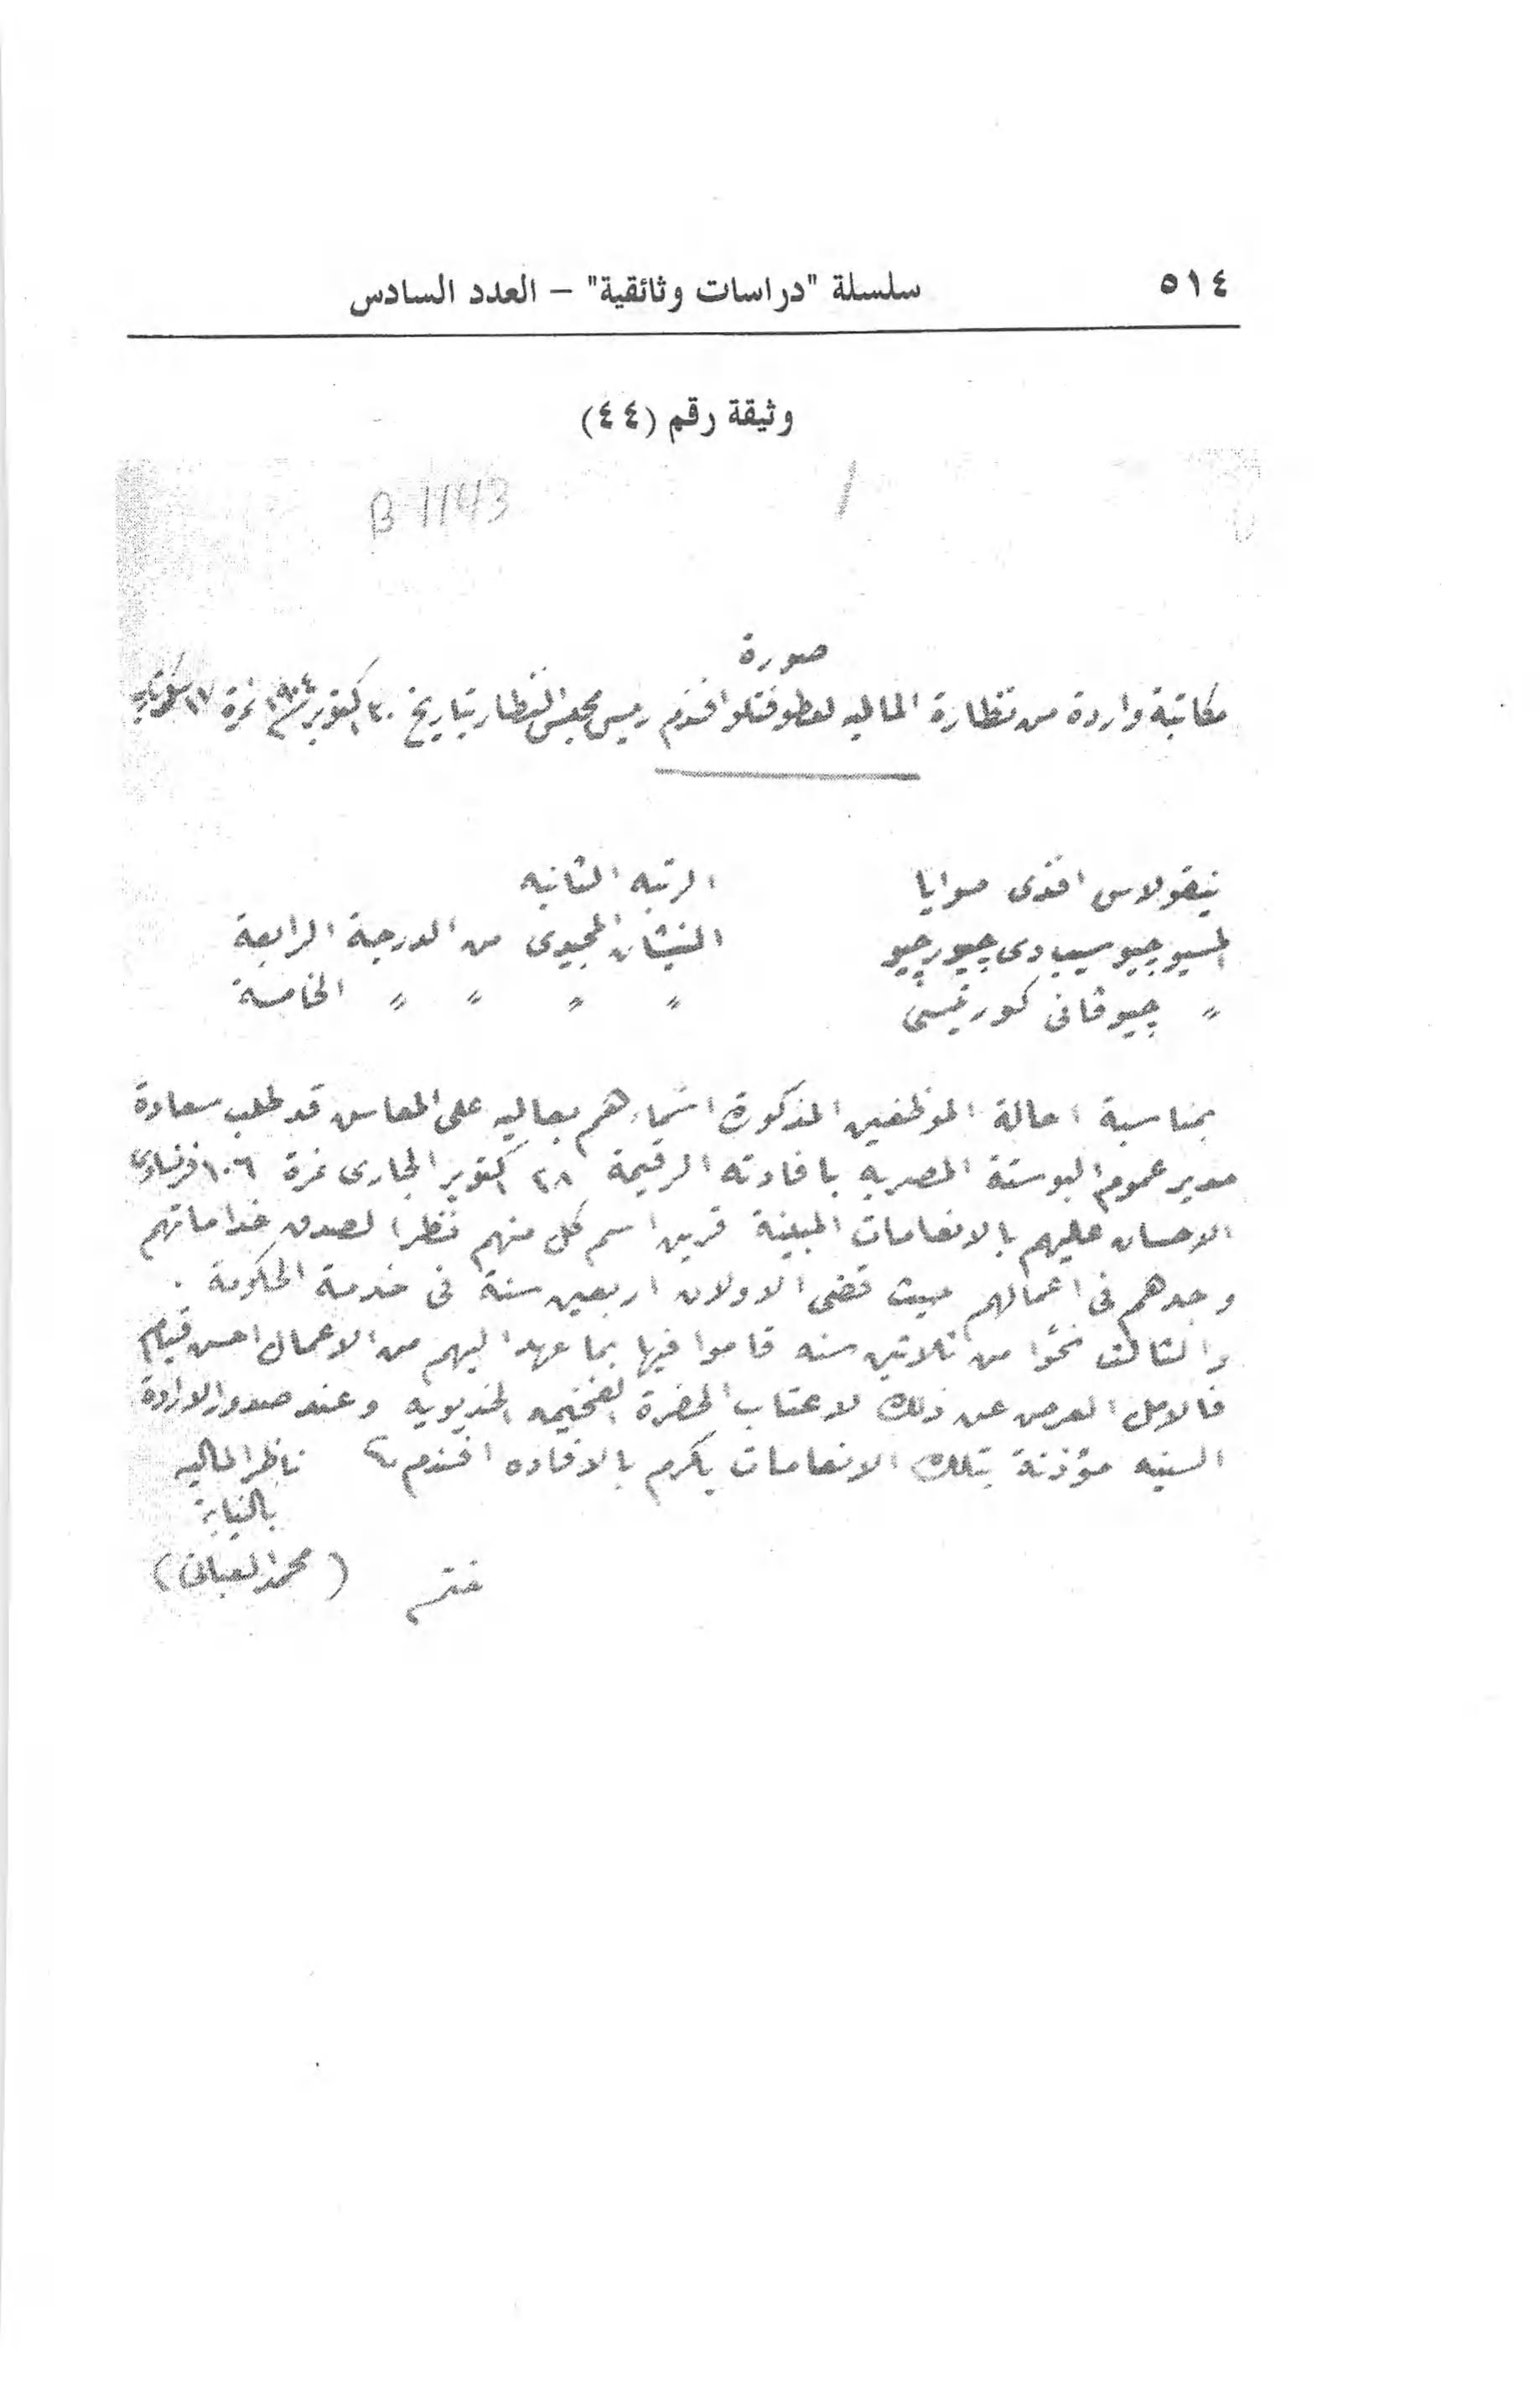 ٥١٤
سلسلة "دراسات وثائقية" – العدد السادس
وثيقة رقم (٤٤)
B 1143
صورة
مكاتبة واردة من نظارة الماليه لعطوفتلو افندم رئيس مجلس النظار بتاريخ ٣٠ اكتوبر سنة ٩٠٤ نمرة ١٧
نيقولاس افندى صوايا الرتبه الثانيه
المسيو جيوسيبادى چيورچيو النيشان المجيدى من الدرجة الرابعة
" چيوڤانى كورتيسى " " " " الخامسة
بمناسبة احالة الموظفين المذكورة اسماءهم بعاليه على المعاش قد طلب سعادة
مدير عموم البوستة المصريه بافادته الرقيمة ٢٨ اكتوبر الجارى نمرة ١٠٦ فرنساوى
الاحسان عليهم بالانعامات المبينة قرين اسم كل منهم نظرا لصدق خداماتهم
وجدهم فى اعمالهم حيث قضى الاولان اربعين سنة فى خدمة الحكومة .
والثالث نحوا من ثلاثين سنه قاموا فيها بما عهد اليهم من الاعمال احسن قيام
فالامل العرض عن ذلك لاعتاب الحضرة الفخيمه الخديويه وعند صدور الارادة
السنيه مؤذنة بتلك الانعامات يكرم بالافاده افندم ناظر الماليه
بالنيابة
ختم (محمد العبانى)